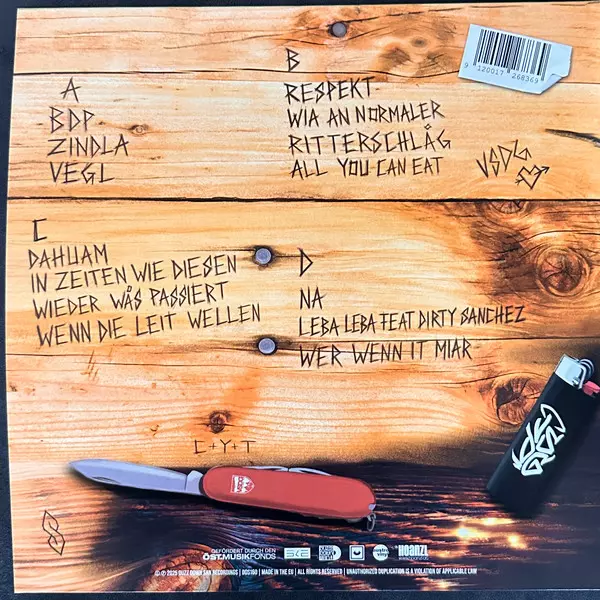 A
BDP
ZINDLA
VEGL
B
RESPEKT
WIA AN NORMALER
RITTERSCHLÅG
ALL YOU CAN EAT
9 120017 268369
VSDG
C
DAHUAM
IN ZEITEN WIE DIESEN
WIEDER WÅS PASSIERT
WENN DIE LEIT WELLEN
D
NA
LEBA LEBA FEAT DIRTY SANCHEZ
WER WENN IT MIAR
C+Y+T
GEFÖRDERT DURCH DEN
ÖST.MUSIKFONDS
SKE
HOANZL
℗ © 2025 DUZZ DOWN SAN RECORDINGS | DDS160 | MADE IN THE EU | ALL RIGHTS RESERVED | UNAUTHORIZED DUPLICATION IS A VIOLATION OF APPLICABLE LAW